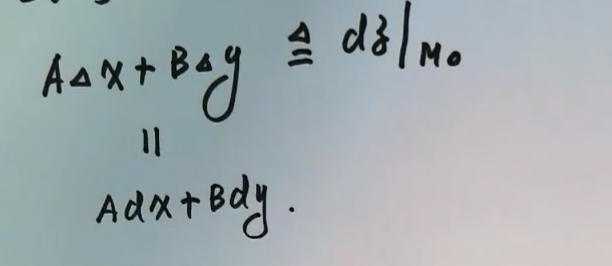 AΔx + BΔy ≜ dz|M₀
||
Adx + Bdy.